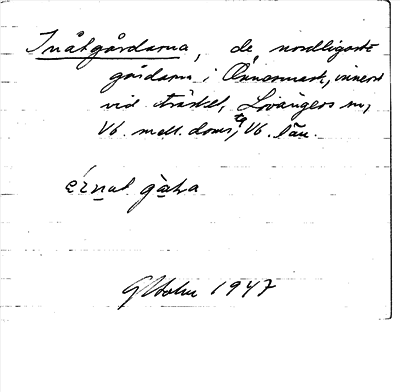 Inåtgårdarna, de nordligaste
gårdarna i Önnesmark, innerst
vid träsket, Lövångers sn,
Vb. mell. doms, Vb. län.
G Holm 1947